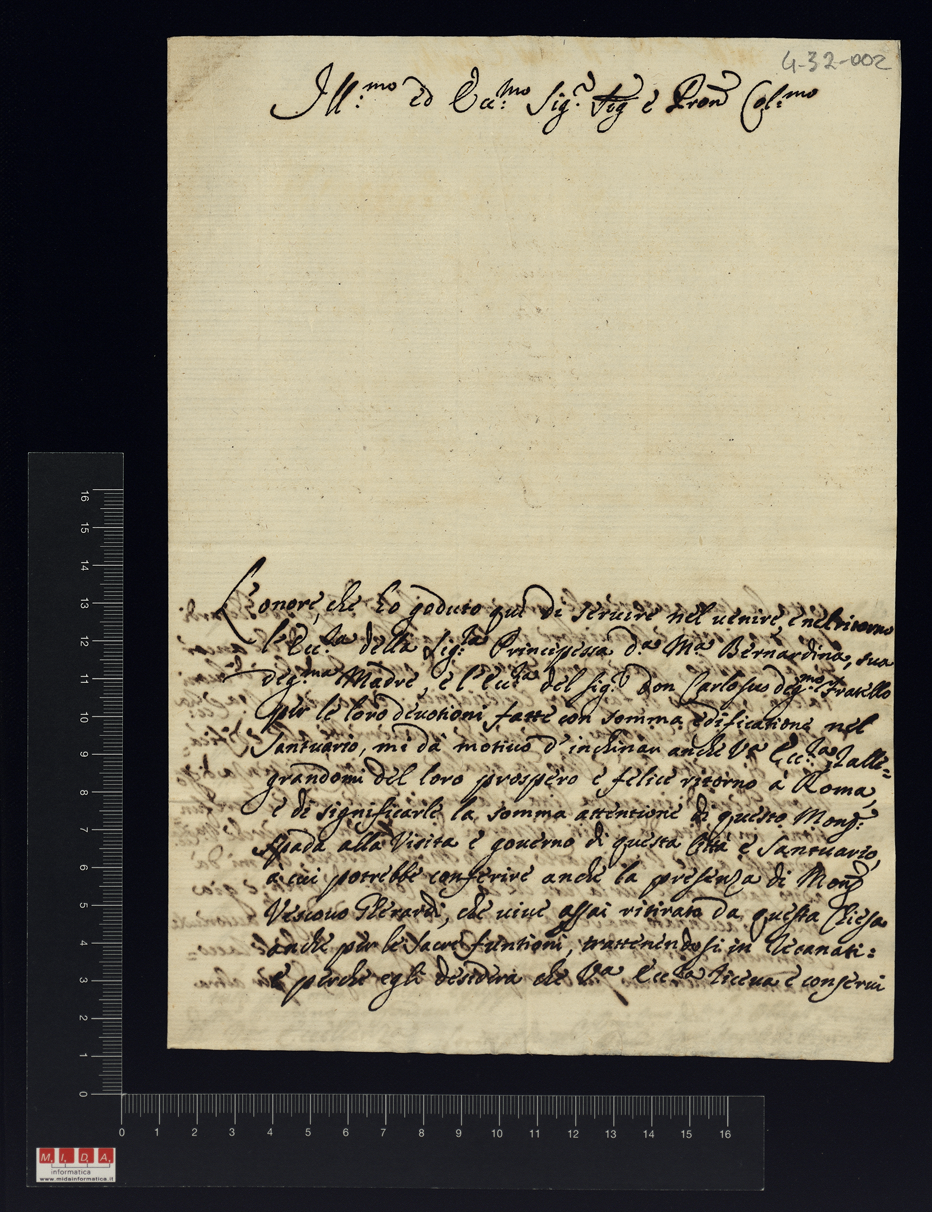 4-32-002
Ill:mo ed Ecc:mo Sig.r Sig è Pron Col:mo
L'onore, che ho goduto qui di seruire nel uenire, è nel ritorno
l'Ecc:za della Sig:ra Principessa d.a M.a Bernardina, sua
deg:ma Madre, è l'Ecc:za del Sig.r Don Carlo suo deg:mo Fratello
per le loro deuotioni fatte con somma edificatione nel
Santuario, mi dà motiuo d'inchinar anche V.a Ecc:za ralle=
grandomi del loro prospero è felice ritorno à Roma,
è di significarle la somma attentione di questo Mong.r
Spada alla Visita è gouerno di questa Città è Santuario,
à cui potrebbe conferire anche la presenza di Mong.r
Vescouo Gherardi, che uiue assai ritirato da questa Chiesa
anche per le Sacre funtioni, trattenendosi in Recanati:
È perche egli desidera che V.a Ecc:za riceua è conserui
16
15
14
13
12
11
10
9
8
7
6
5
4
3
2
1
0
0 1 2 3 4 5 6 7 8 9 10 11 12 13 14 15 16
M. I. D. A.
informatica
www.midainformatica.it